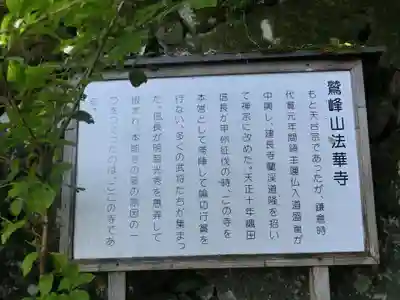 鷲峰山法華寺
もと天台宗であったが、鎌倉時
代寛元年間諸主蓮仏入道盛重が
中興し、建長寺蘭渓道隆を招い
て禅宗に改めた。天正十年織田
信長が甲州征伐の時、この寺を
本営として滞陣して論功行賞を
行ない、多くの武将たちが集まっ
た。信長が明智光秀を愚弄して
本能寺の変の原因の一
つをつくったのは、ここの寺であ
る。